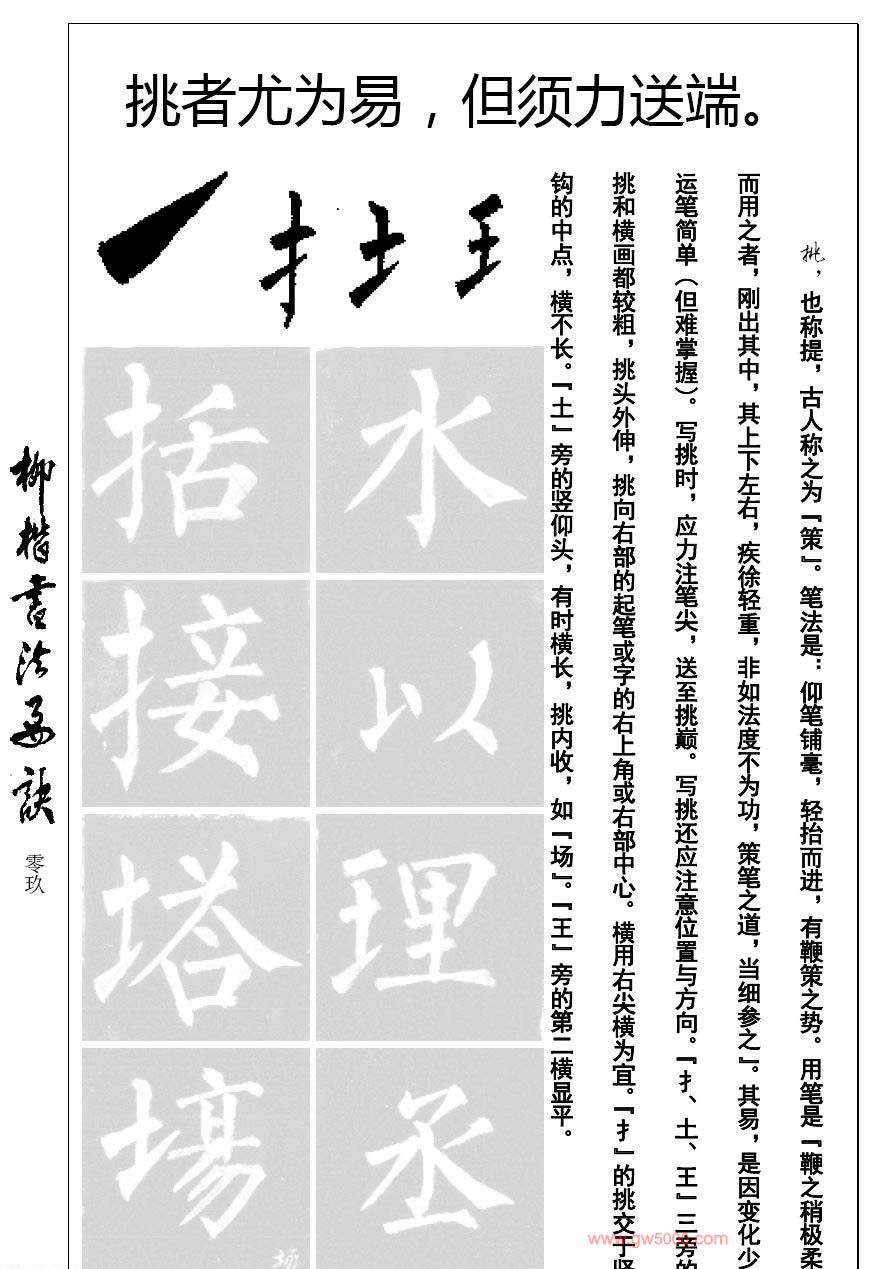 挑者尤为易，但须力送端。
挑，也称提，古人称之为『策』。笔法是：仰笔铺毫，轻抬而进，有鞭策之势。用笔是『鞭之稍极柔
而用之者，刚出其中，其上下左右，疾徐轻重，非如法度不为功，策笔之道，当细参之』。其易，是因变化少
运笔简单（但难掌握）。写挑时，应力注笔尖，送至挑巅。写挑还应注意位置与方向。『扌、土、王』三旁的
挑和横画都较粗，挑头外伸，挑向右部的起笔或字的右上角或右部中心。横用右尖横为宜。『扌』的挑交于竖
钩的中点，横不长。『土』旁的竖仰头，有时横长，挑内收，如『场』。『王』旁的第二横显平。
扌土王
水以理丞
括接塔場
场
柳楷书法要诀
零玖
www.gw500c.com